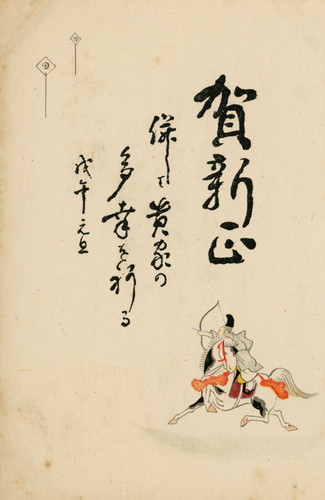 賀新正
併しを貴家の
多幸を祈る
戊午元旦